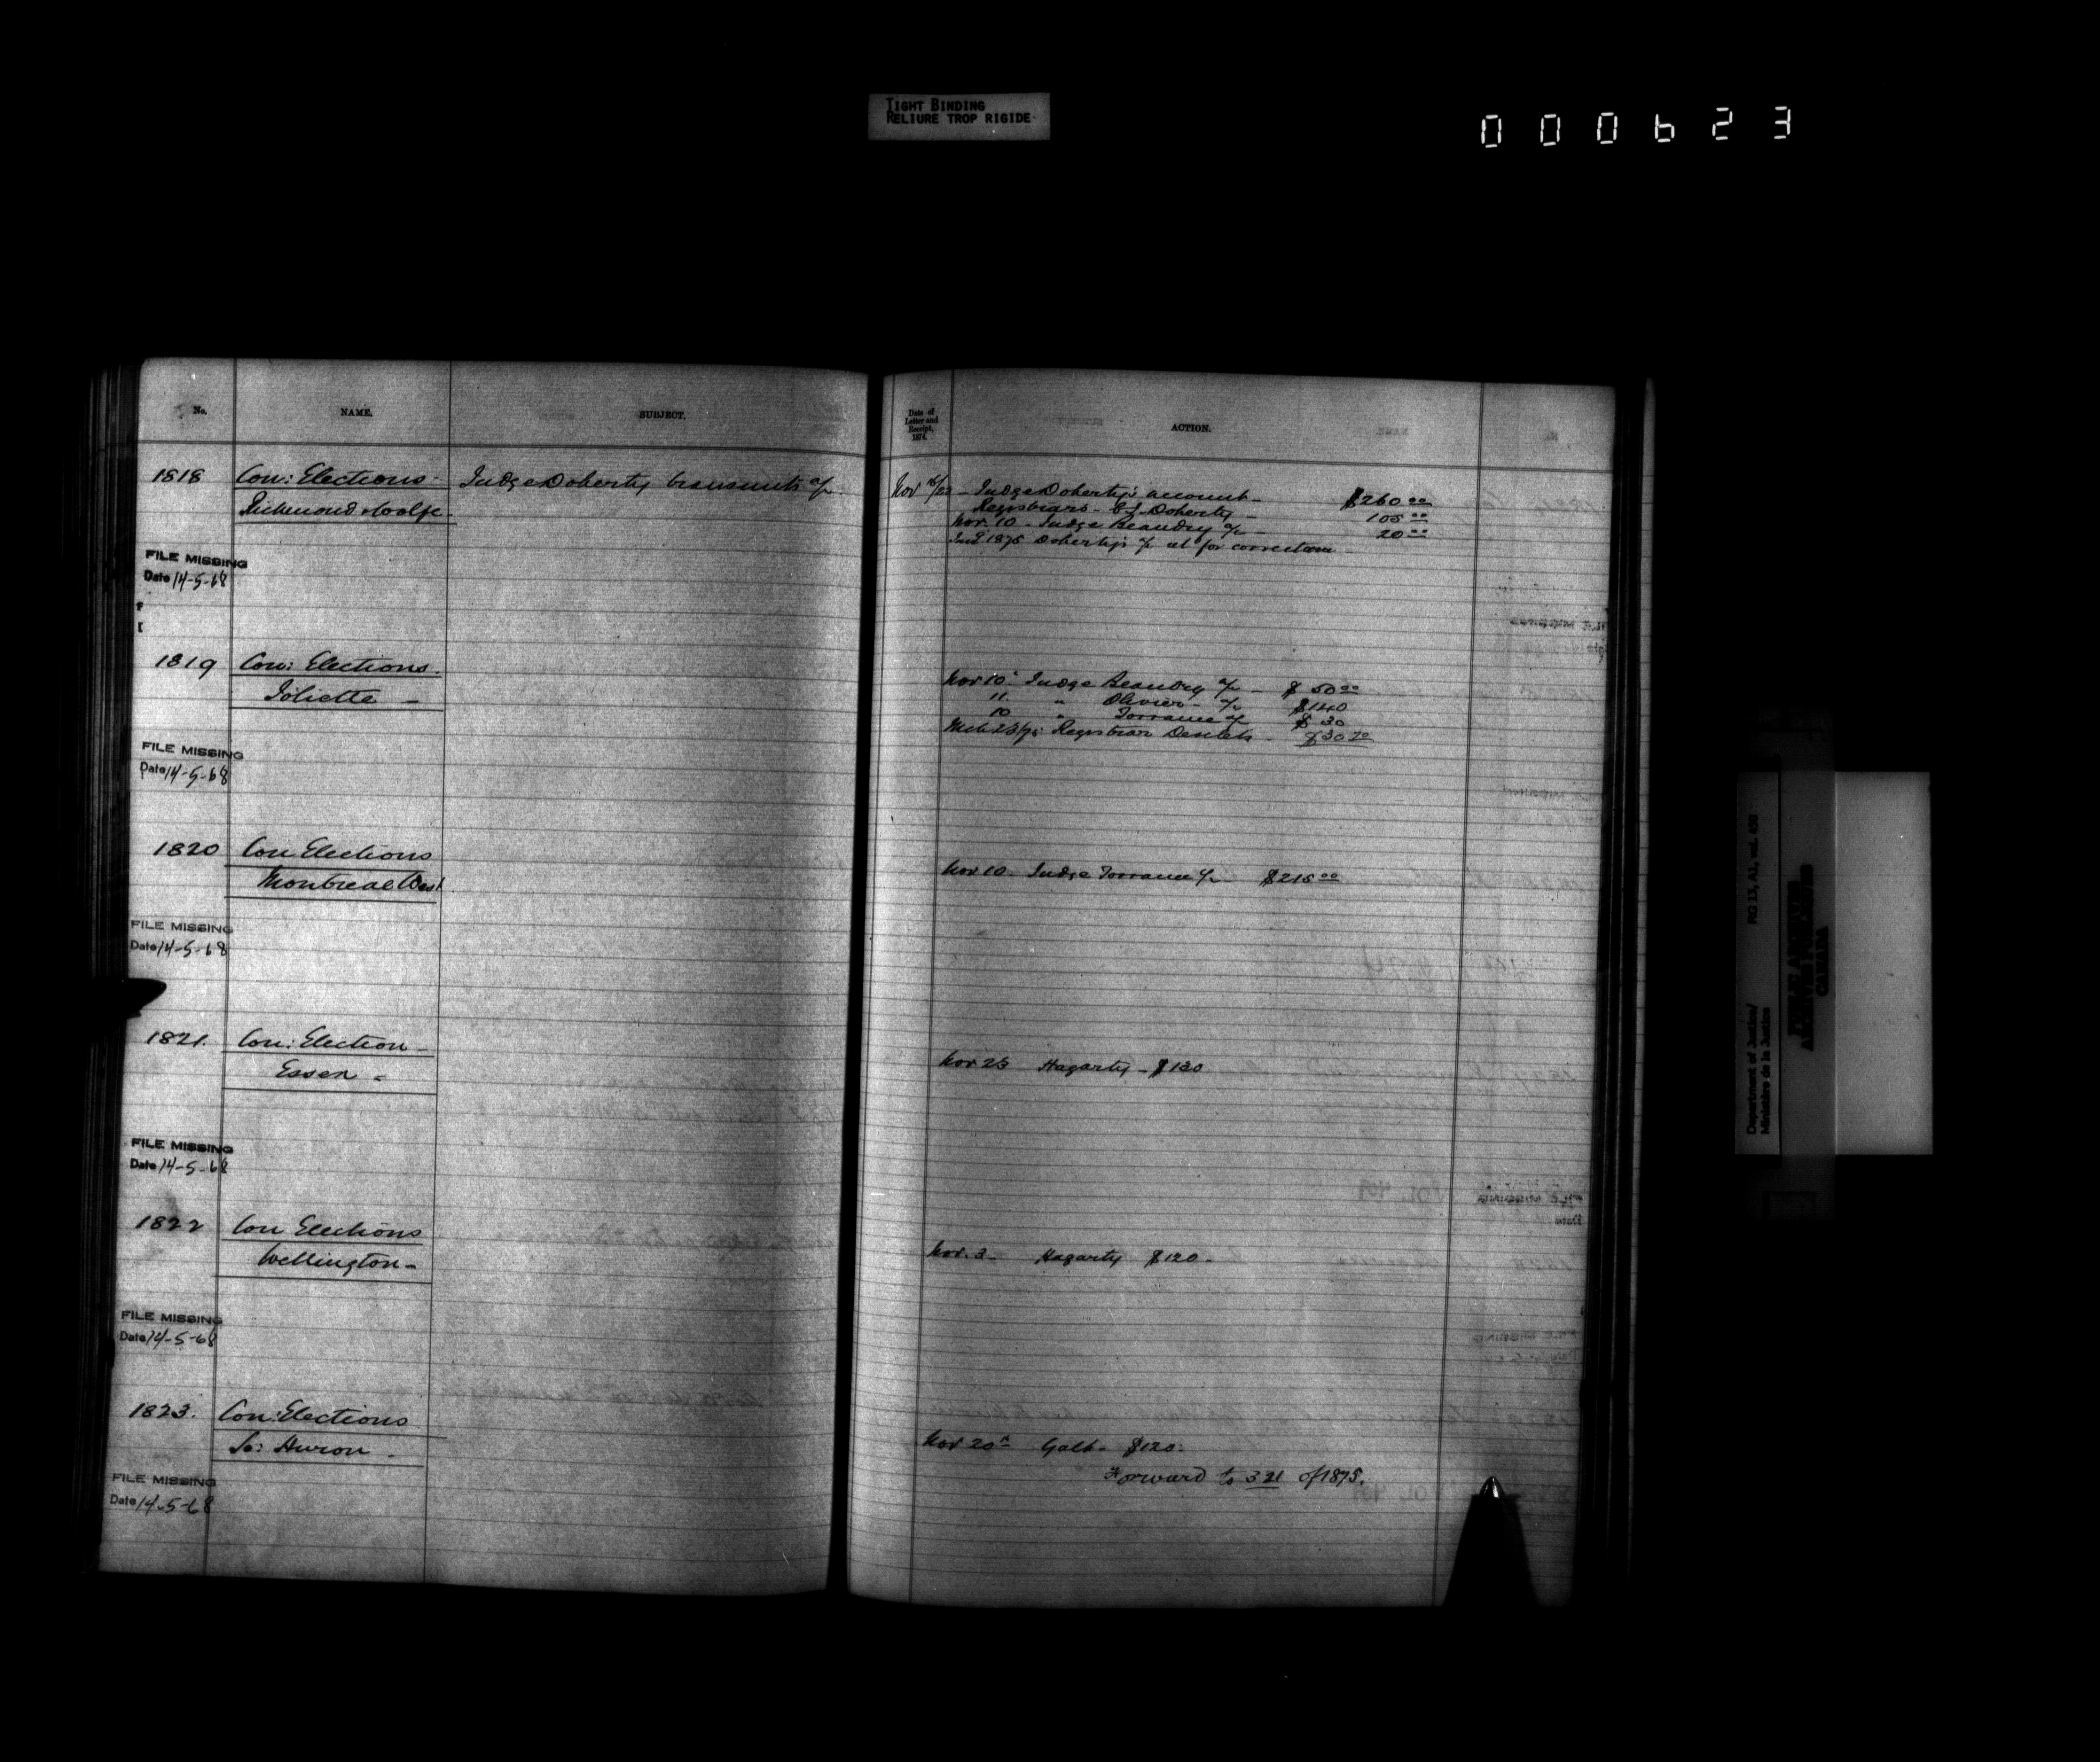 TIGHT BINDING
RELIURE TROP RIGIDE
000623
No.
NAME.
SUBJECT.
Date of
Letter and
Receipt,
1874.
ACTION.
1818 Con: Elections - Judge Doherty transmits a/c
Richmond & Wolfe -
Nov 16/23 - Judge Doherty's account - $260 00
Registrars - C J Doherty - 105 00
Nov. 10 - Judge Beaudry a/c - 20 00
1875 Doherty's a/c for correction
FILE MISSING
Date 14-5-68
1819 Con: Elections.
Joliette -
Nov 10 Judge Beaudry a/c - $50 00
11 " Olivier - a/c $140
10 " Torrance a/c $30
Mch 23/75 Registrar $30 70
FILE MISSING
Date 14-5-68
1820 Con Elections
Montreal West
Nov 10. Judge Torrance a/c - $215 00
FILE MISSING
Date 14-5-68
1821. Con: Election -
Essex -
Nov 23 Hagarty - $130
FILE MISSING
Date 14-5-68
1822 Con Elections
Wellington -
Nov. 3 - Hagarty $120 -
FILE MISSING
Date 14-5-68
1823. Con: Elections
So: Huron -
Nov 20 Galt - $120 -
Forward to 321 of 1875.
FILE MISSING
Date 14-5-68
Department of Justice/ RG 13, A1, vol. 458
Ministère de la Justice
PUBLIC ARCHIVES
ARCHIVES PUBLIQUES
CANADA